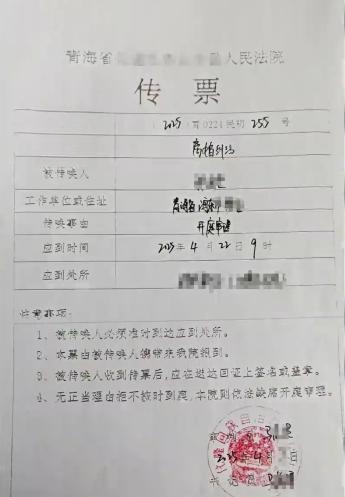 青海省 人民法院
传票
2025 青0224民初 255 号
被传唤人
工作单位或住址 青海省
传唤事由 开庭审理
应到时间 2025年4月22日9时
应到处所
注意事项:
1、被传唤人必须准时到达应到处所。
2、本票由被传唤人携带来我院报到。
3、被传唤人收到传票后,应在送达回证上签名或盖章。
4、无正当理由拒不按时到庭,本院则依法缺席开庭审理。
审判
2025年4月 日
书记员